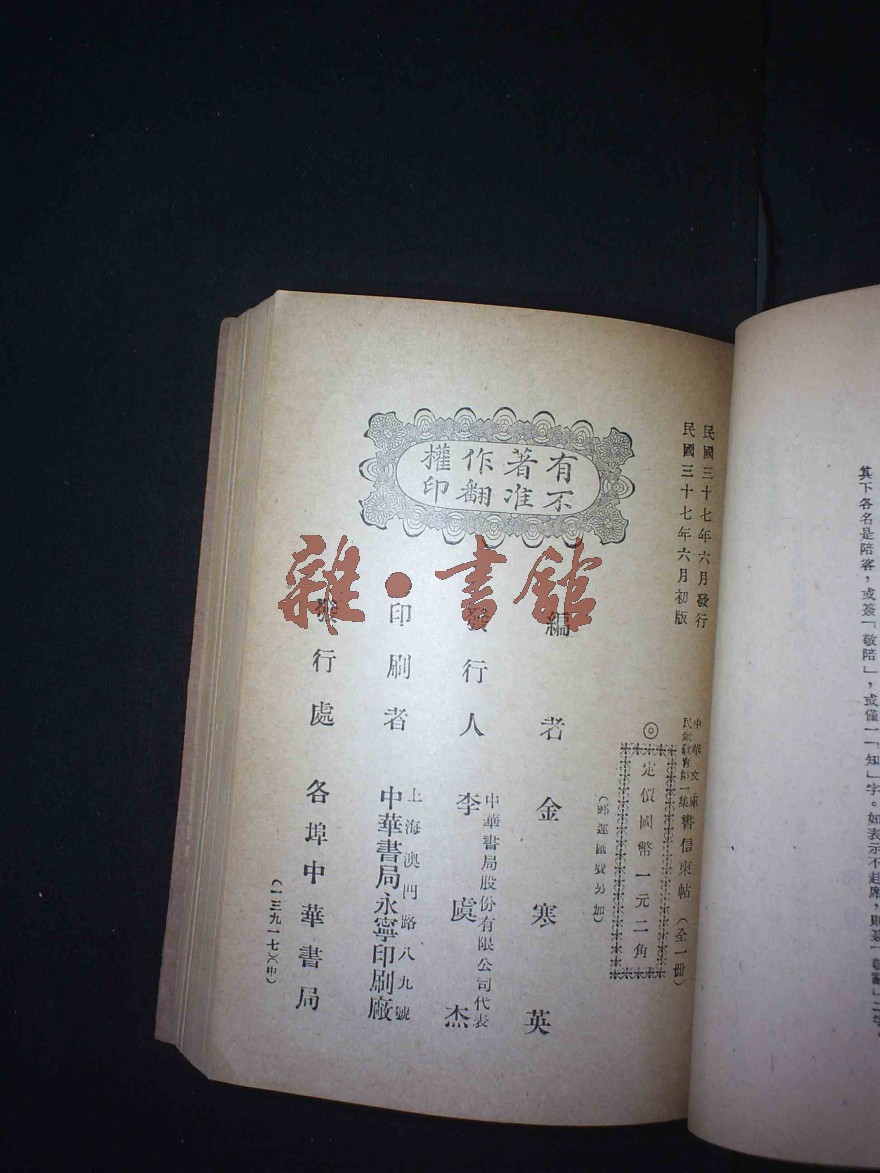 其下各名是陪客，或簽「敬陪」，或僅一「知」字。如表示不赴席，則簽「敬辭」二字，
民國三十七年六月發行
民國三十七年六月初版
中華文庫
民眾教育第一集
書信柬帖（全一冊）
◎
定價國幣一元二角
（郵運匯費另加）
有著作權
不准翻印
編者 金寒英
發行人 李虞杰
中華書局股份有限公司代表
印刷者
上海澳門路八九號
中華書局永寧印刷廠
發行處 各埠中華書局
（一三九一七）（中）
雜·書館